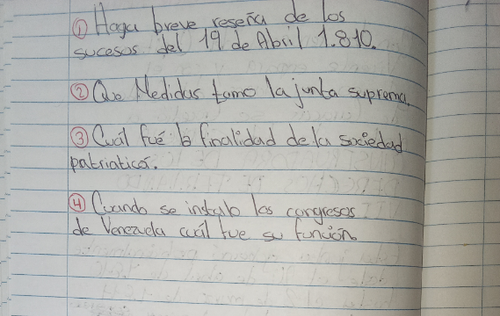 ① Haga breve reseña de los
sucesos del 19 de Abril 1.810.
② Que Medidas tomo la junta suprema.
③ Cuál fué la finalidad de la sociedad
patriatica.
④ Cuando se instalo los congresos
de Venezuela cuál fue su función.